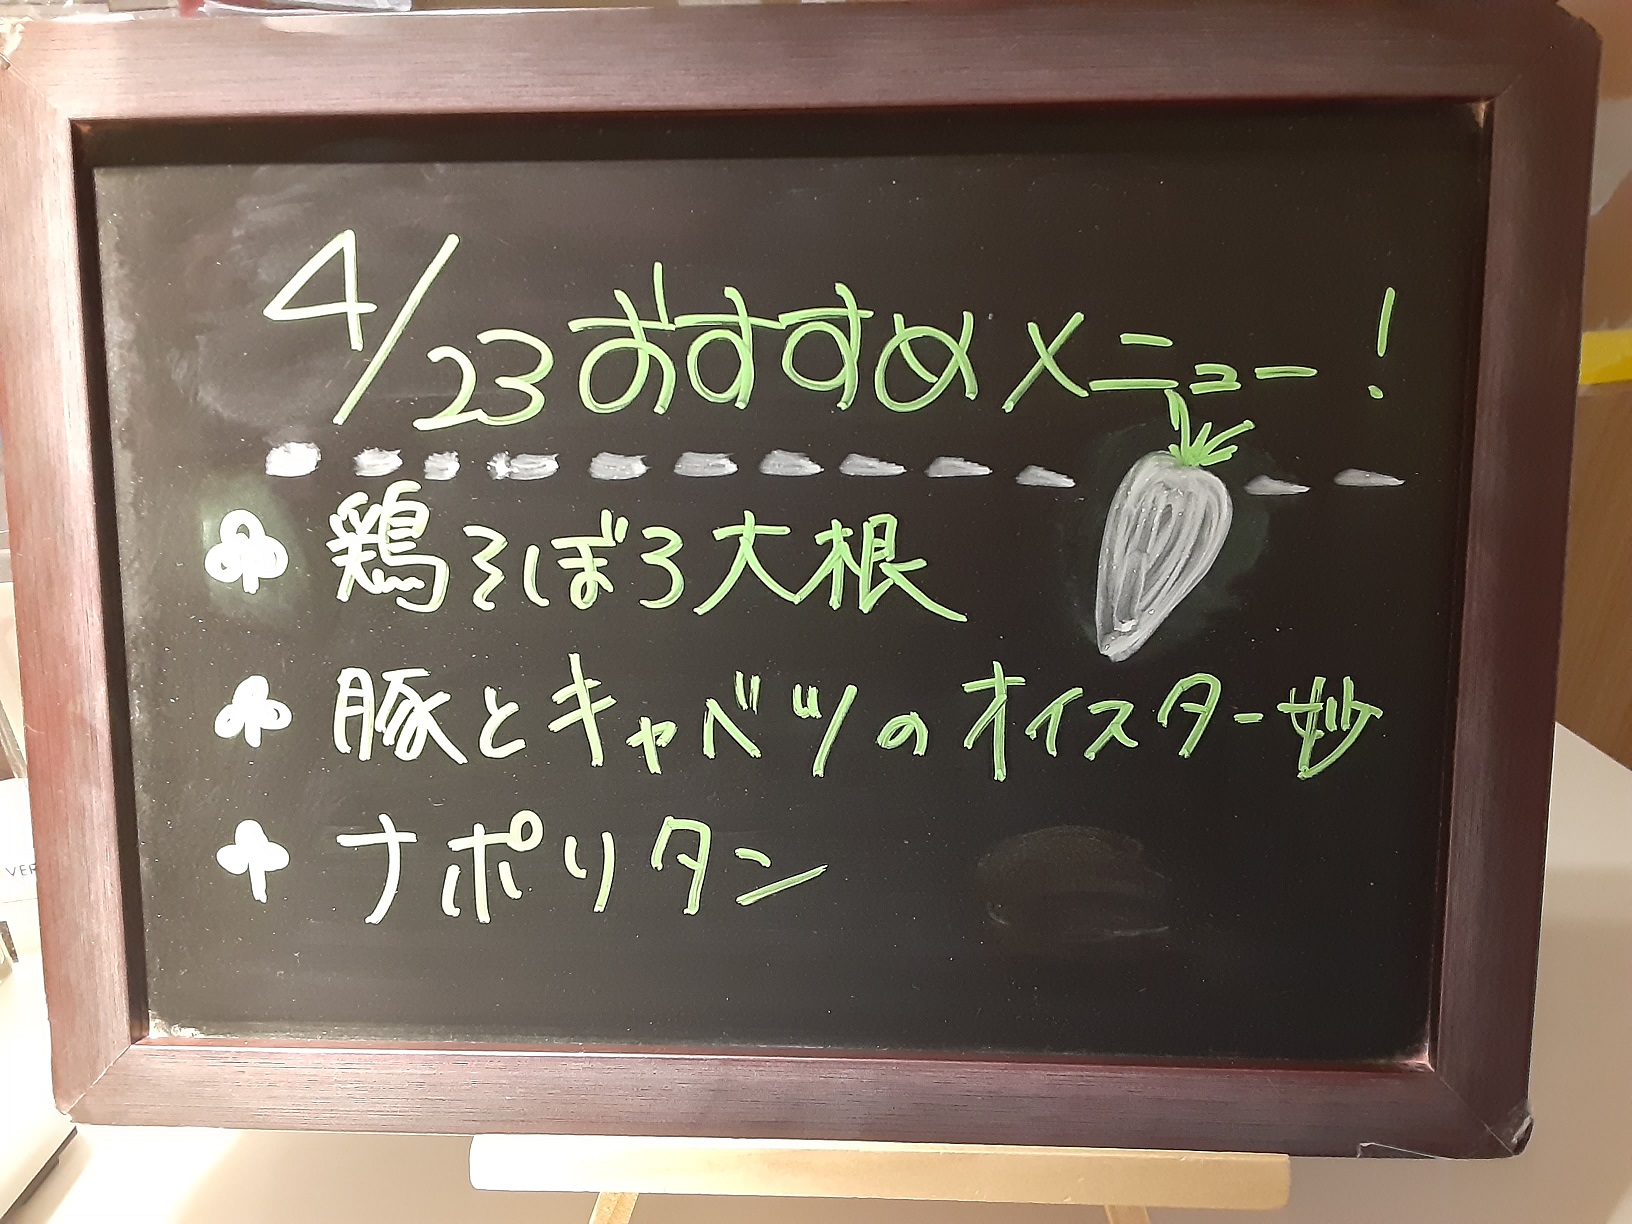 4/23おすすめメニュー!
鶏そぼろ大根
豚とキャベツのオイスター妙
ナポリタン
VER